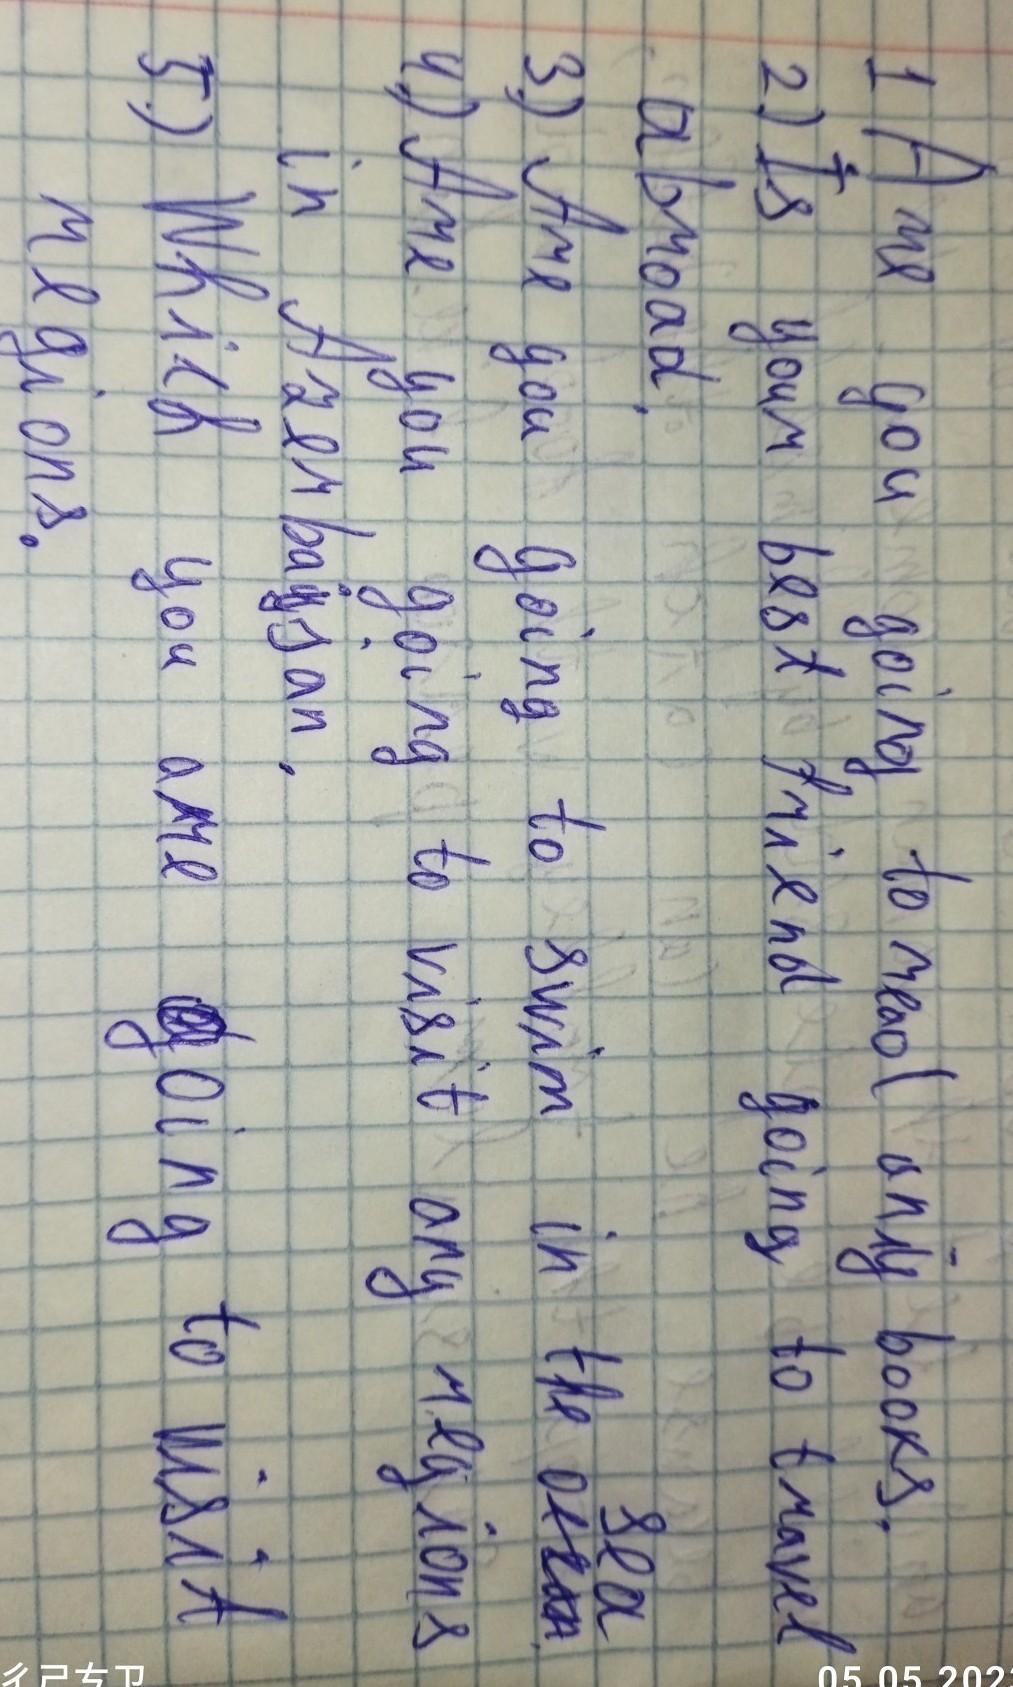 1 Are you going to read any books.
2.) Is your best friend going to travel
abroad.
3.) Are you going to swim in the ocean sea
4.) Are you going to visit any regions
in Azerbayjan.
5.) Which you are going to visit
regions.
05.05.202